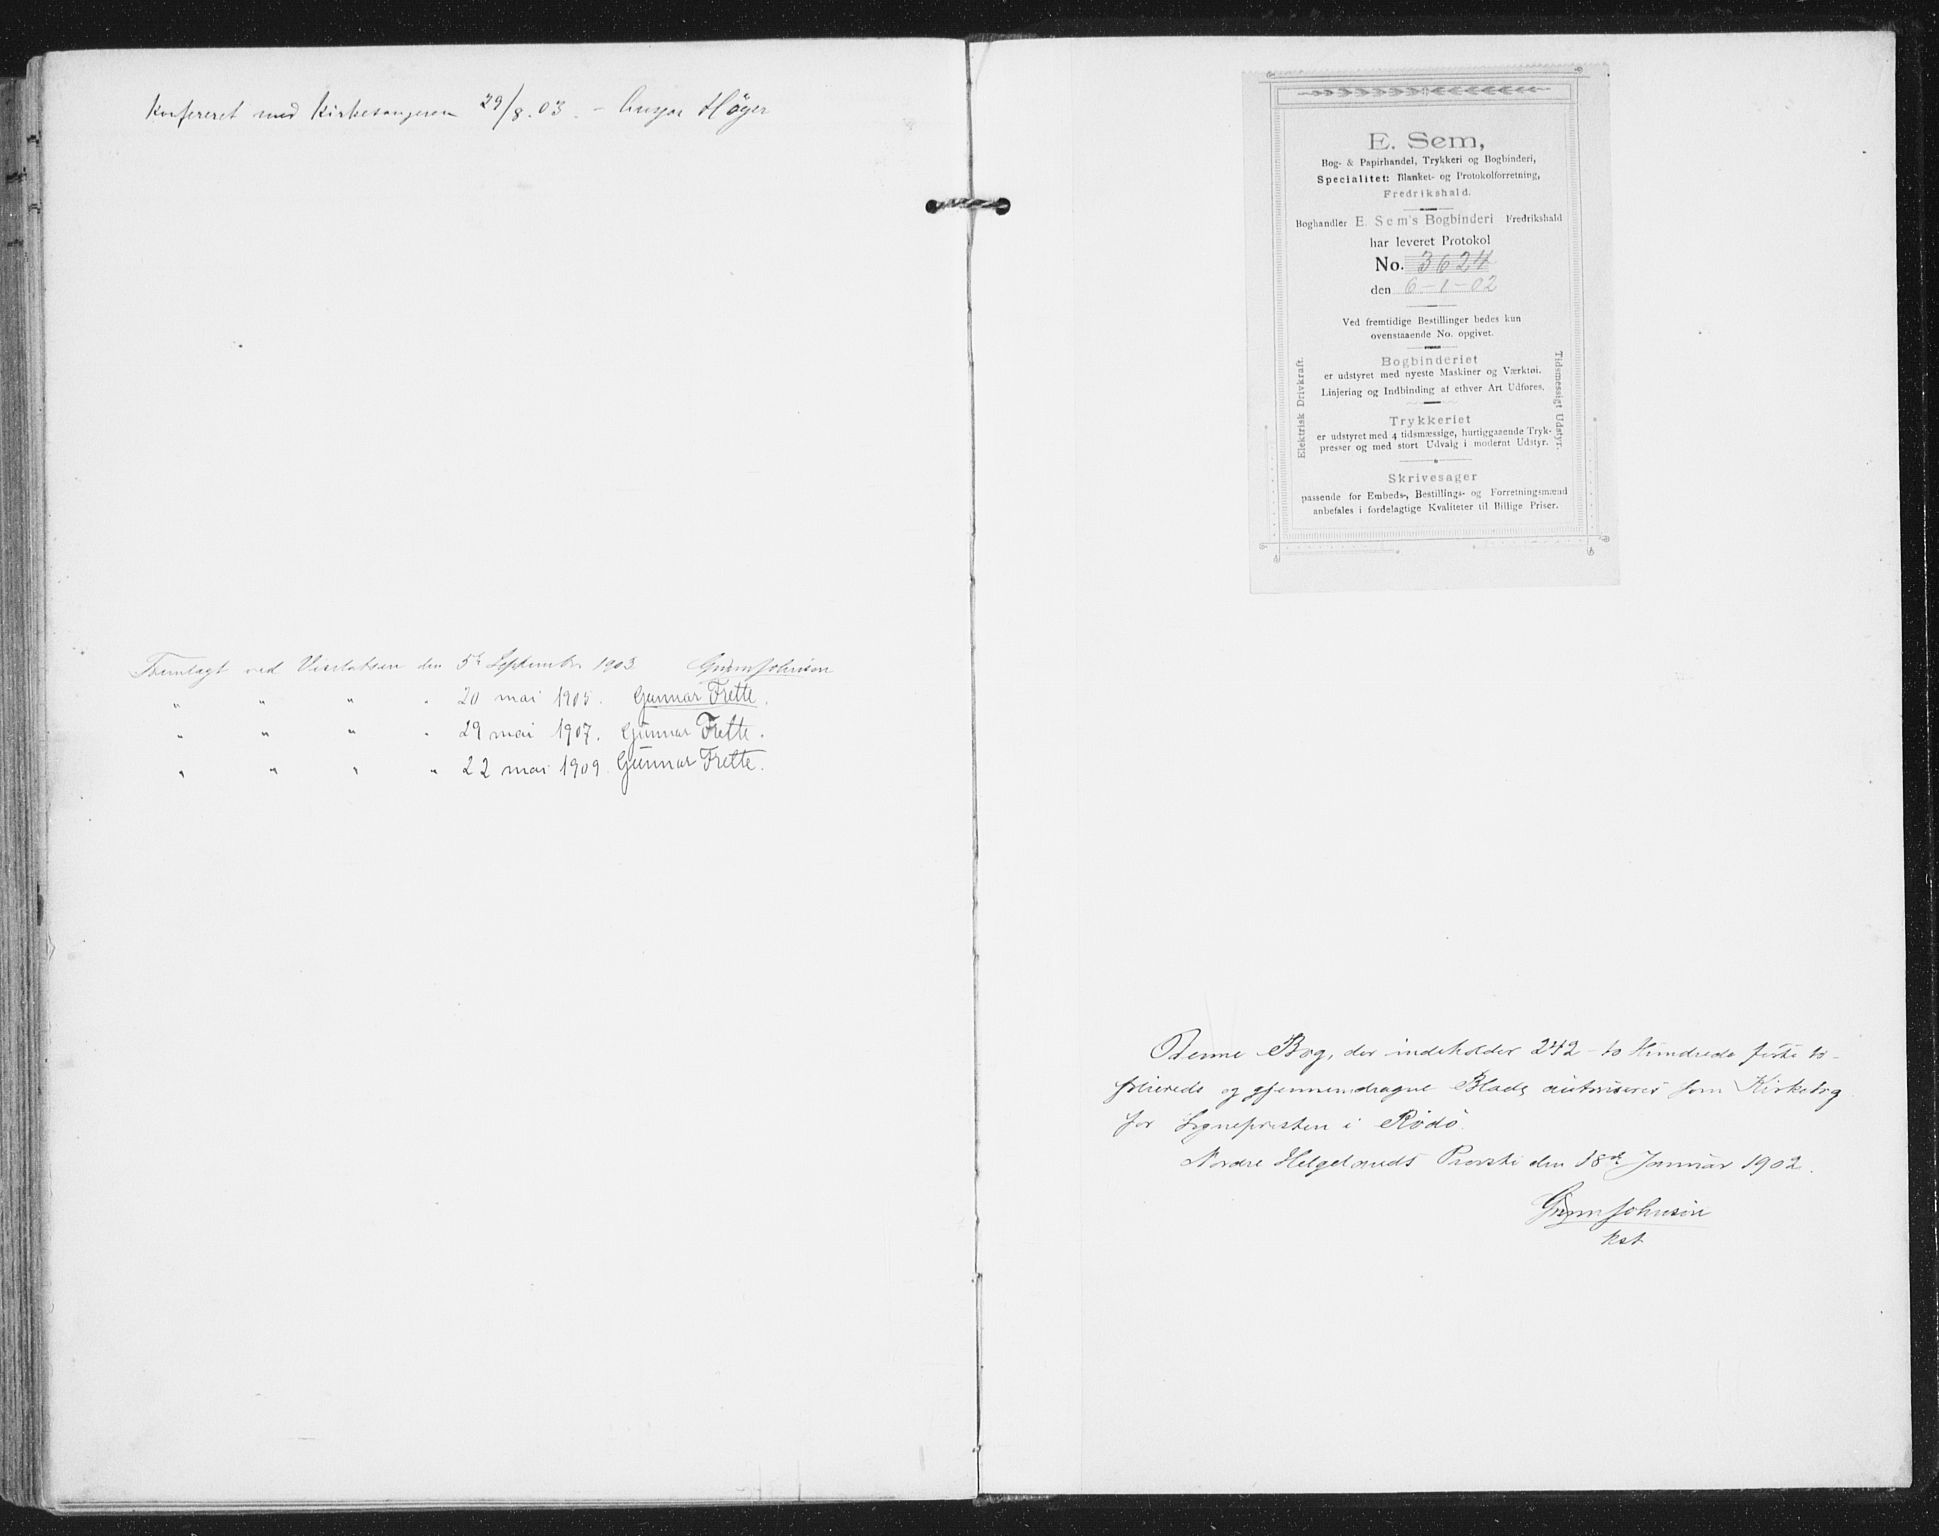 Konfereret med Kirkesangeren 29/8. 03. - Høyer
Fremlagt ved Visitatsen den 5te September 1903 Johnson
" " " " 20 mai 1905. Gunnar Frette.
" " " " 29 mai 1907. Gunnar Frette.
" " " " 22 mai 1909. Gunnar Frette.
E. Sem,
Bog- & Papirhandel, Trykkeri og Bogbinderi,
Specialitet: Blanket- og Protokolforretning,
Fredrikshald.
Boghandler E. Sem's Bogbinderi Fredrikshald
har leveret Protokol
No. 3624
den 6-1-02
Ved fremtidige Bestillinger bedes kun
ovenstaaende No. opgivet.
Bogbinderiet
er udstyret med nyeste Maskiner og Værktøi.
Linjering og Indbinding af ethver Art Udføres.
Trykkeriet
er udstyret med 4 tidsmæssige, hurtiggaaende Tryk-
presser og med stort Udvalg i modernt Udstyr.
Skrivesager
passende for Embeds-, Bestillings- og Forretningsmænd
anbefales i fordelagtige Kvaliteter til Billige Priser.
Elektrisk Drivkraft.
Tidsmessigt Udstyr.
Denne Bog, der indeholder 242 - to Hundrede firti to -
folierede og gjennemdragne Blade autoriseres som Kirkebog
for Sognepresten i Rødø.
Nordre Helgelands Provsti den 18de Januar 1902.
Johnson
kst